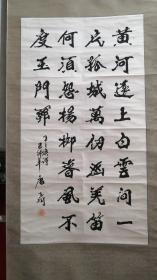 黄河遠上白雲间一
片孤城萬仞山羌笛
何須怨楊柳春風不
度玉門關
王之渙詩